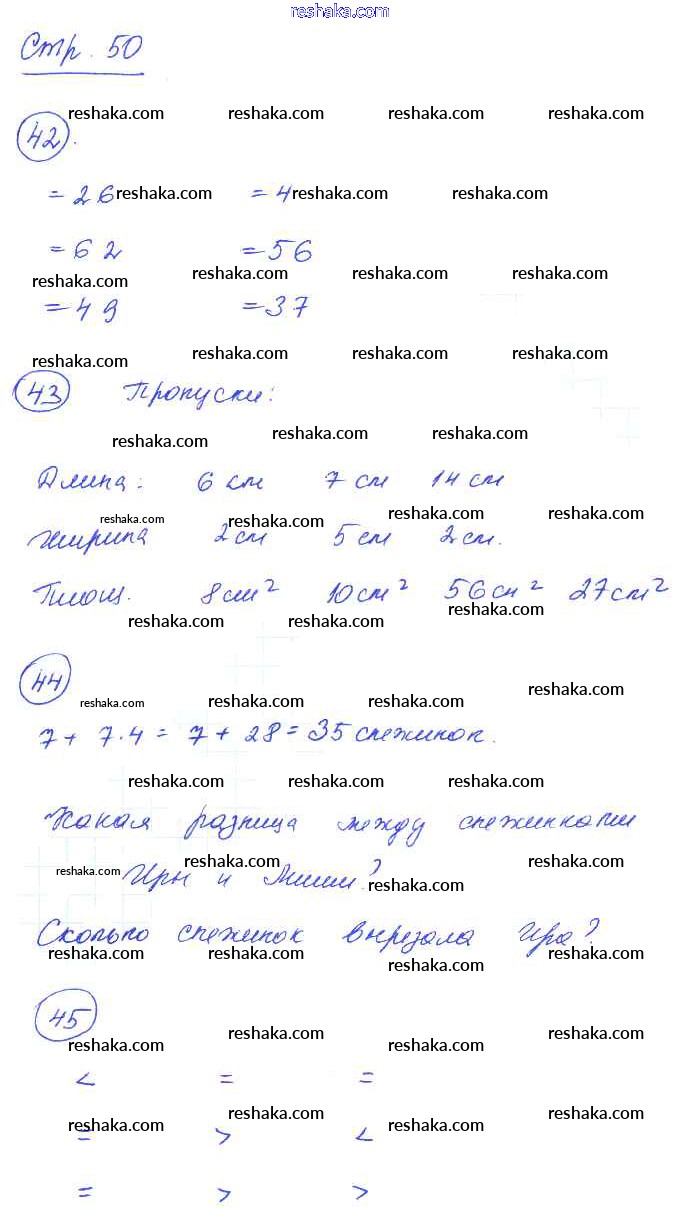 reshaka.com
Стр. 50
reshaka.com reshaka.com reshaka.com reshaka.com
42.
= 26 reshaka.com = 4 reshaka.com reshaka.com
= 62 = 56
reshaka.com reshaka.com reshaka.com reshaka.com
= 49 = 37
reshaka.com reshaka.com reshaka.com reshaka.com
43 Пропуски:
reshaka.com reshaka.com reshaka.com
Длина: 6 см 7 см 14 см
reshaka.com reshaka.com reshaka.com reshaka.com
Ширина 2 см 5 см 2 см.
Площ. 8 см² 10 см² 56 см² 27 см²
reshaka.com reshaka.com reshaka.com
44
reshaka.com reshaka.com reshaka.com reshaka.com
7 + 7·4 = 7 + 28 = 35 снежинок.
reshaka.com reshaka.com reshaka.com
Какая разница между снежинками
reshaka.com reshaka.com reshaka.com reshaka.com
Иры и Миши?
Сколько снежинок вырезала Ира?
reshaka.com reshaka.com reshaka.com reshaka.com
45
reshaka.com reshaka.com reshaka.com reshaka.com
< = =
reshaka.com reshaka.com reshaka.com reshaka.com
= > <
= > >